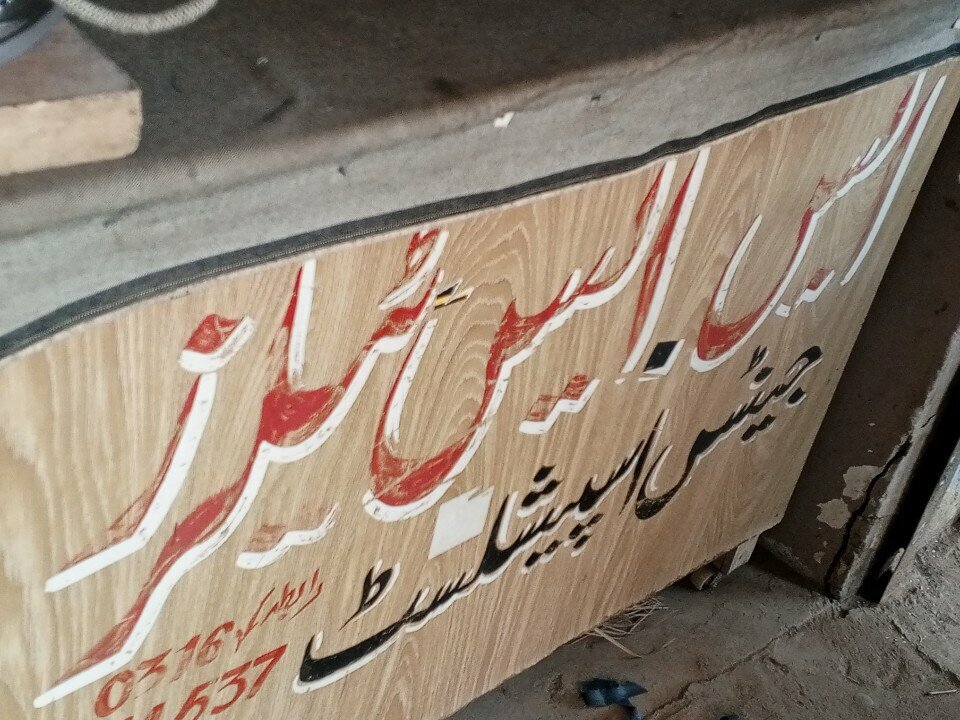 ایس۔ایس ٹیلرز
جینٹس اسپیشلسٹ
رابطہ
0316
537